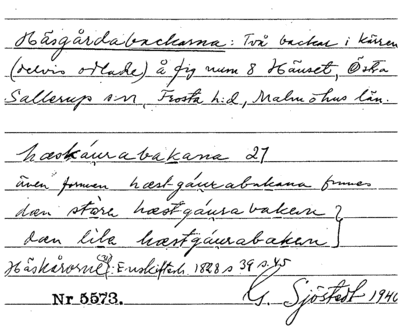 Häsgårdabackarna: Två backar i kärren
(delvis odlade) å fig num 8 Hänset, Östra
Sallerup s:n, Frosta h:d, Malmöhus län.
hæskáurabakana 27
även formen hæstgáurabakana finnes
dæn stòre hæstgáurabaken }
dæn lila hæstgáurabaken }
: Enskiftesh. 1828 s 39 s. 45
Nr 5573. G. Sjöstedt 1946